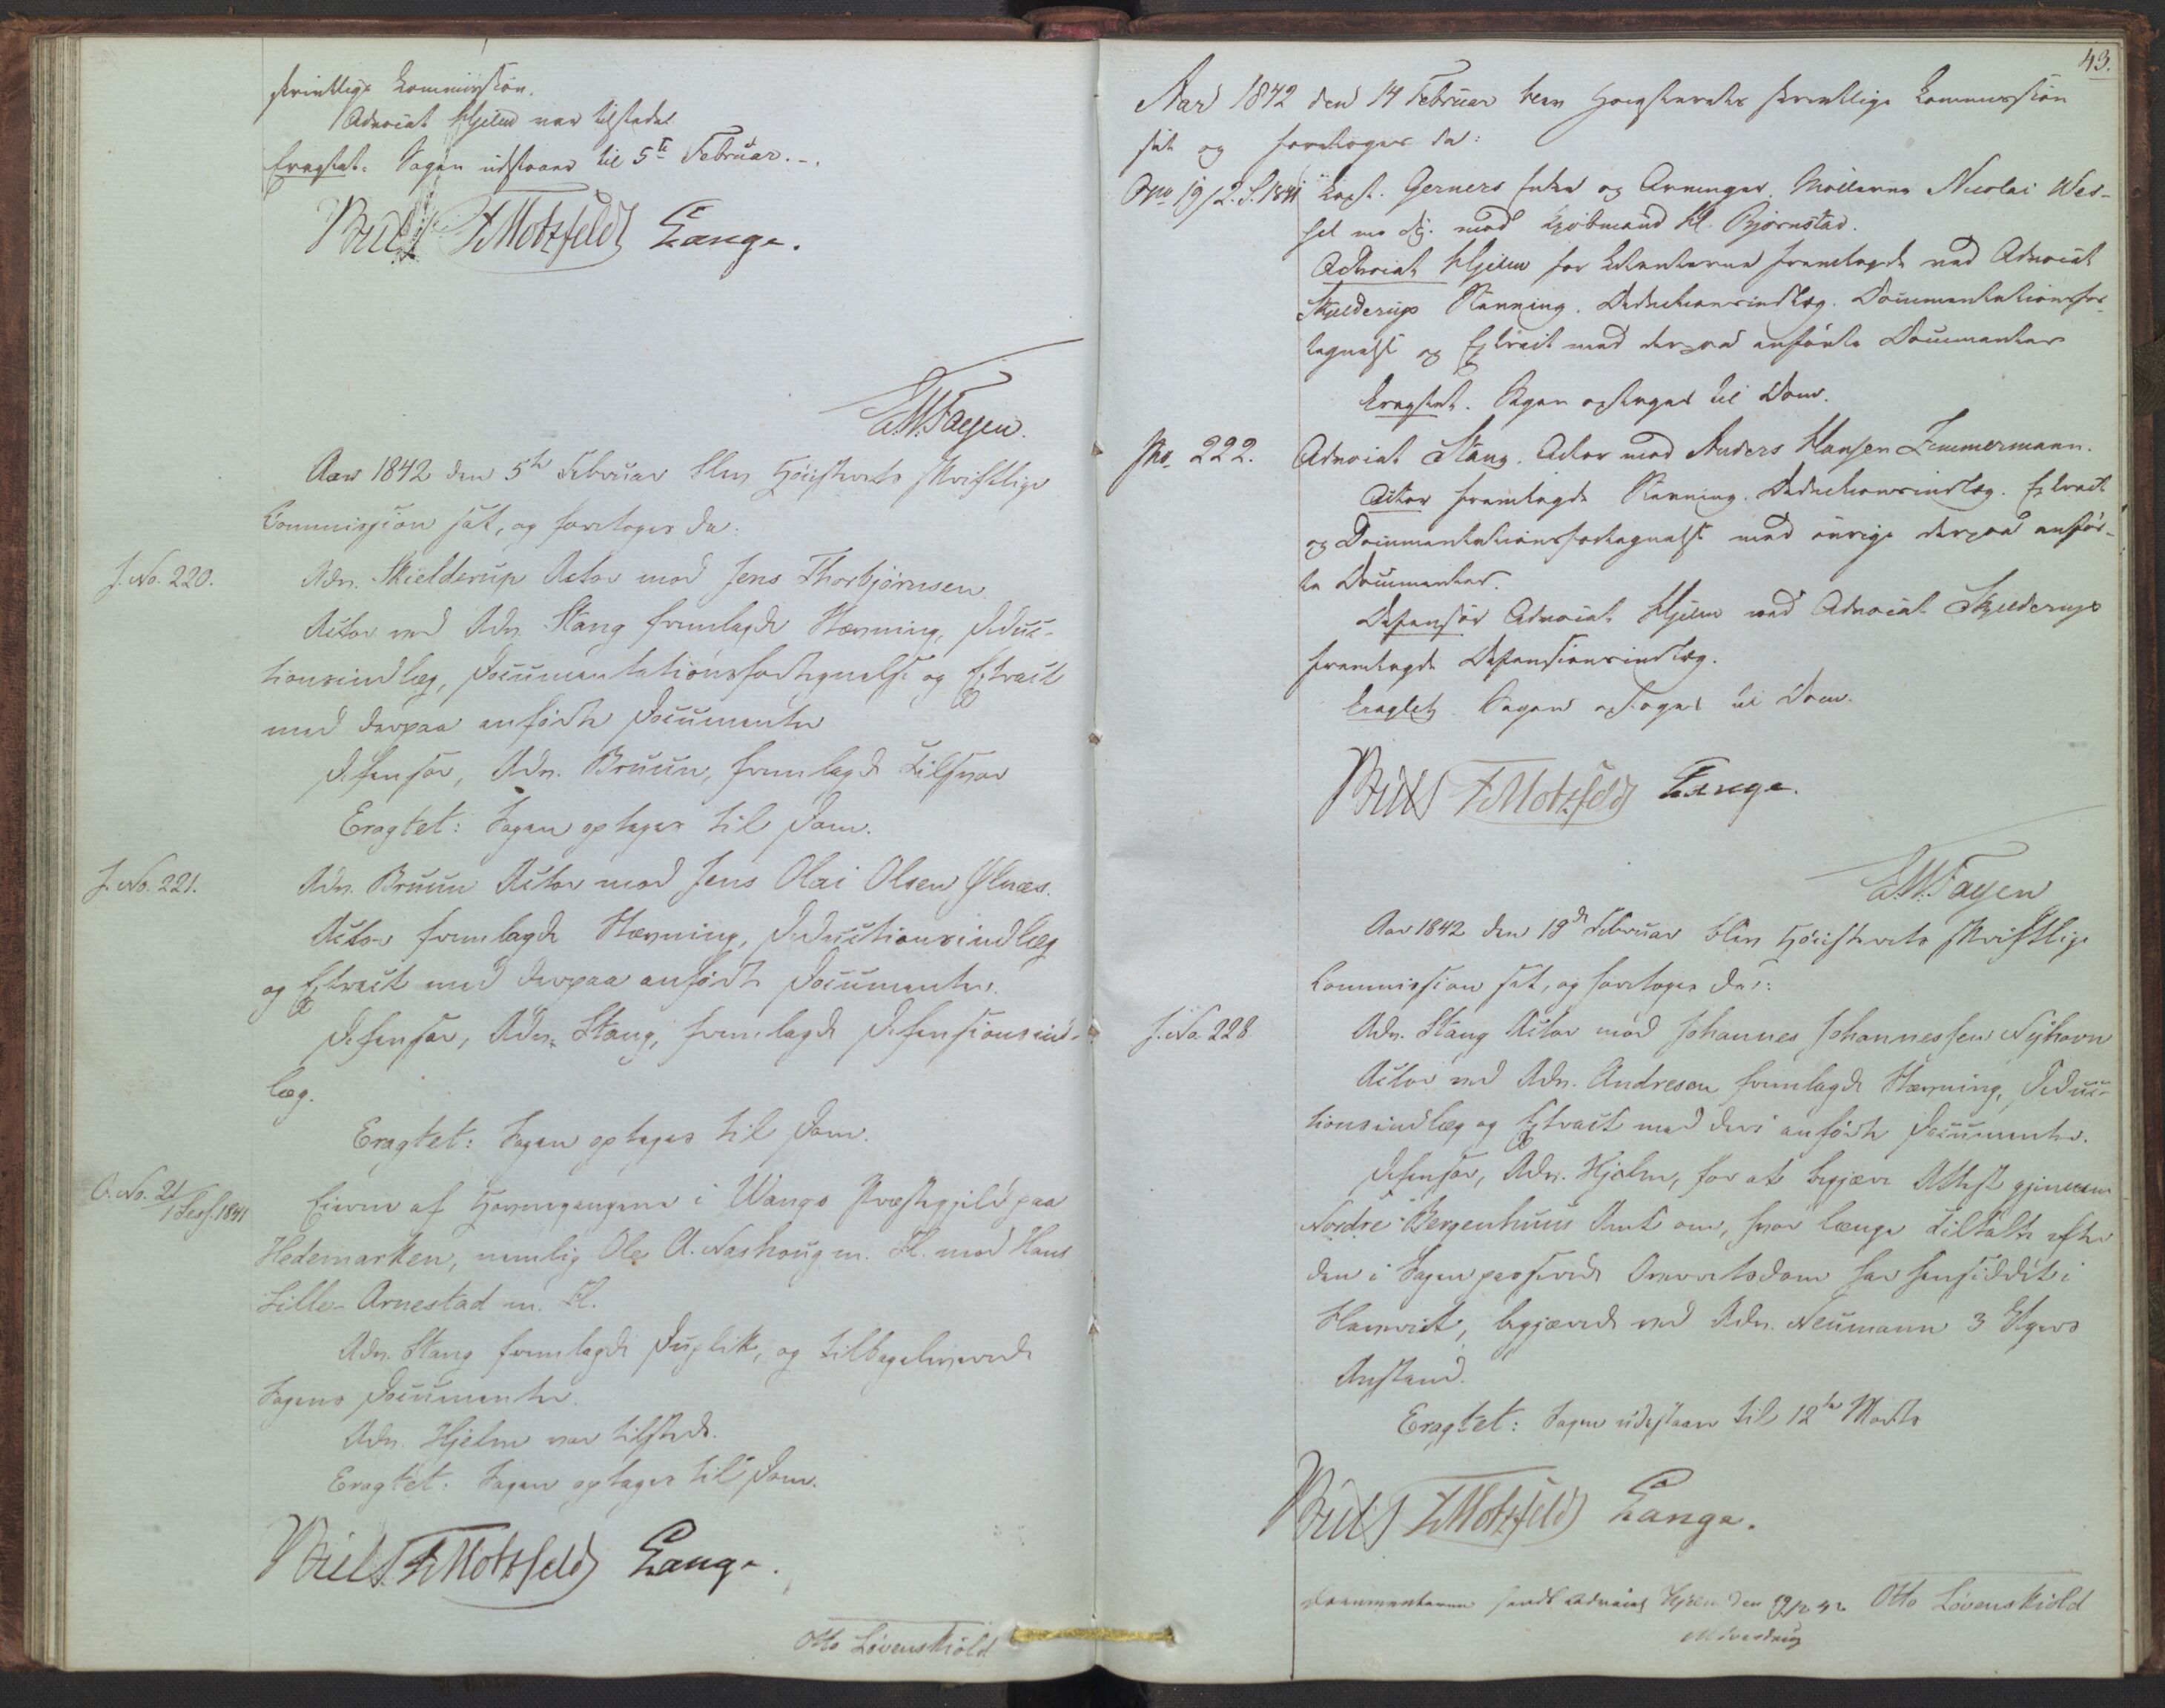 skriftlige Kommission.
Advocat Hjelm var tilstede.
Eragtet. Sagen udstaaer til 5te Februar.
Motzfeldt Lange.
Aar 1842 den 5te Februar blev Höiesterets skriftlige
Commission sat, og foretoges da:
J. No. 220.
Adv. Skielderup Actor mod Jens Thorbjörnsen.
Actor ved Adv. Stang fremlagde Stævning, Deduc-
tionsindlæg, Documentationsfortegnelse og Extract
med derpaa anförte Documenter
Defensor, Adv. Bruun, fremlagde Tilsvar
Eragtet: Sagen optages til Dom.
J. No. 221.
Adv. Bruun Actor mod Jens Olai Olsen Ølnæs.
Actor fremlagde Stævning, Deductionsindlæg
og Extract med derpaa anförte Documenter.
Defensor, Adv. Stang, fremlagde Defensionsind-
læg.
Eragtet: Sagen optages til Dom.
O. No. 21/1 Sess. 1841
Eierne af i Wangs Præstegjeld paa
Hedemarken, nemlig Ole A. Nashoug m. Fl. mod Hans
Lille-Arnestad m. Fl.
Adv. Stang fremlagde Duplik, og tilbageleverede
Sagens Documenter.
Adv. Hjelm var tilstede.
Eragtet: Sagen optages til Dom.
Motzfeldt Lange.
Otto Løvenskiold
43.
Aar 1842 den 14 Februar blev Høiesterets skriftlige Kommission
sat og foretoges da:
O No 19/2. S. 1841 Capt. Gerners Enke og Arvinger, Nicolai Wes-
sel m. fl. mod Kjöbmand H. Bjørnstad.
Advocat Hjelm for Citanterne fremlagde ved Advocat
Skjelderup Stevning. Deductionsindlæg. Documentationsfor-
tegnelse og Extract med derpaa anförte Documenter
Eragtet. Sagen optages til Dom.
No 222.
Advocat Stang. Actor mod Anders Hansen Zimmermann.
Actor fremlagde Stevning. Deductionsindlæg. Extract
og Documentationsfortegnelse med øvrige derpaa anför-
te Documenter.
Defensor Advocat Hjelm ved Advocat Skjelderup
fremlagde Defensionsindlæg.
Eragtet Sagen optages til Dom.
Motzfeldt Lange.
Aar 1842 den 19de Februar blev Höiesterets skriftlige
Commission sat, og foretoges da:
J. No. 228
Adv. Stang Actor mod Johannes Johannessen Nÿhavn
Actor ved Adv. Andresen fremlagde Stævning, Deduc-
tionsindlæg og Extract med deri anförte Documenter.
Defensor, Adv. Hjelm, for at begjære Attest gjennem
Nordre Bergenhuus Amt om, hvor længe Tiltalte efter
den i Sagen passerede Overretsdom har hensiddet i
Varetægt, begjærede ved Adv. Neumann 3 Ugers
Anstand.
Eragtet: Sagen udestaaer til 12te Marts
Motzfeldt Lange.
Documenterne sendt Advocat Hjelm den 19/2 42 Otto Løvenskiold